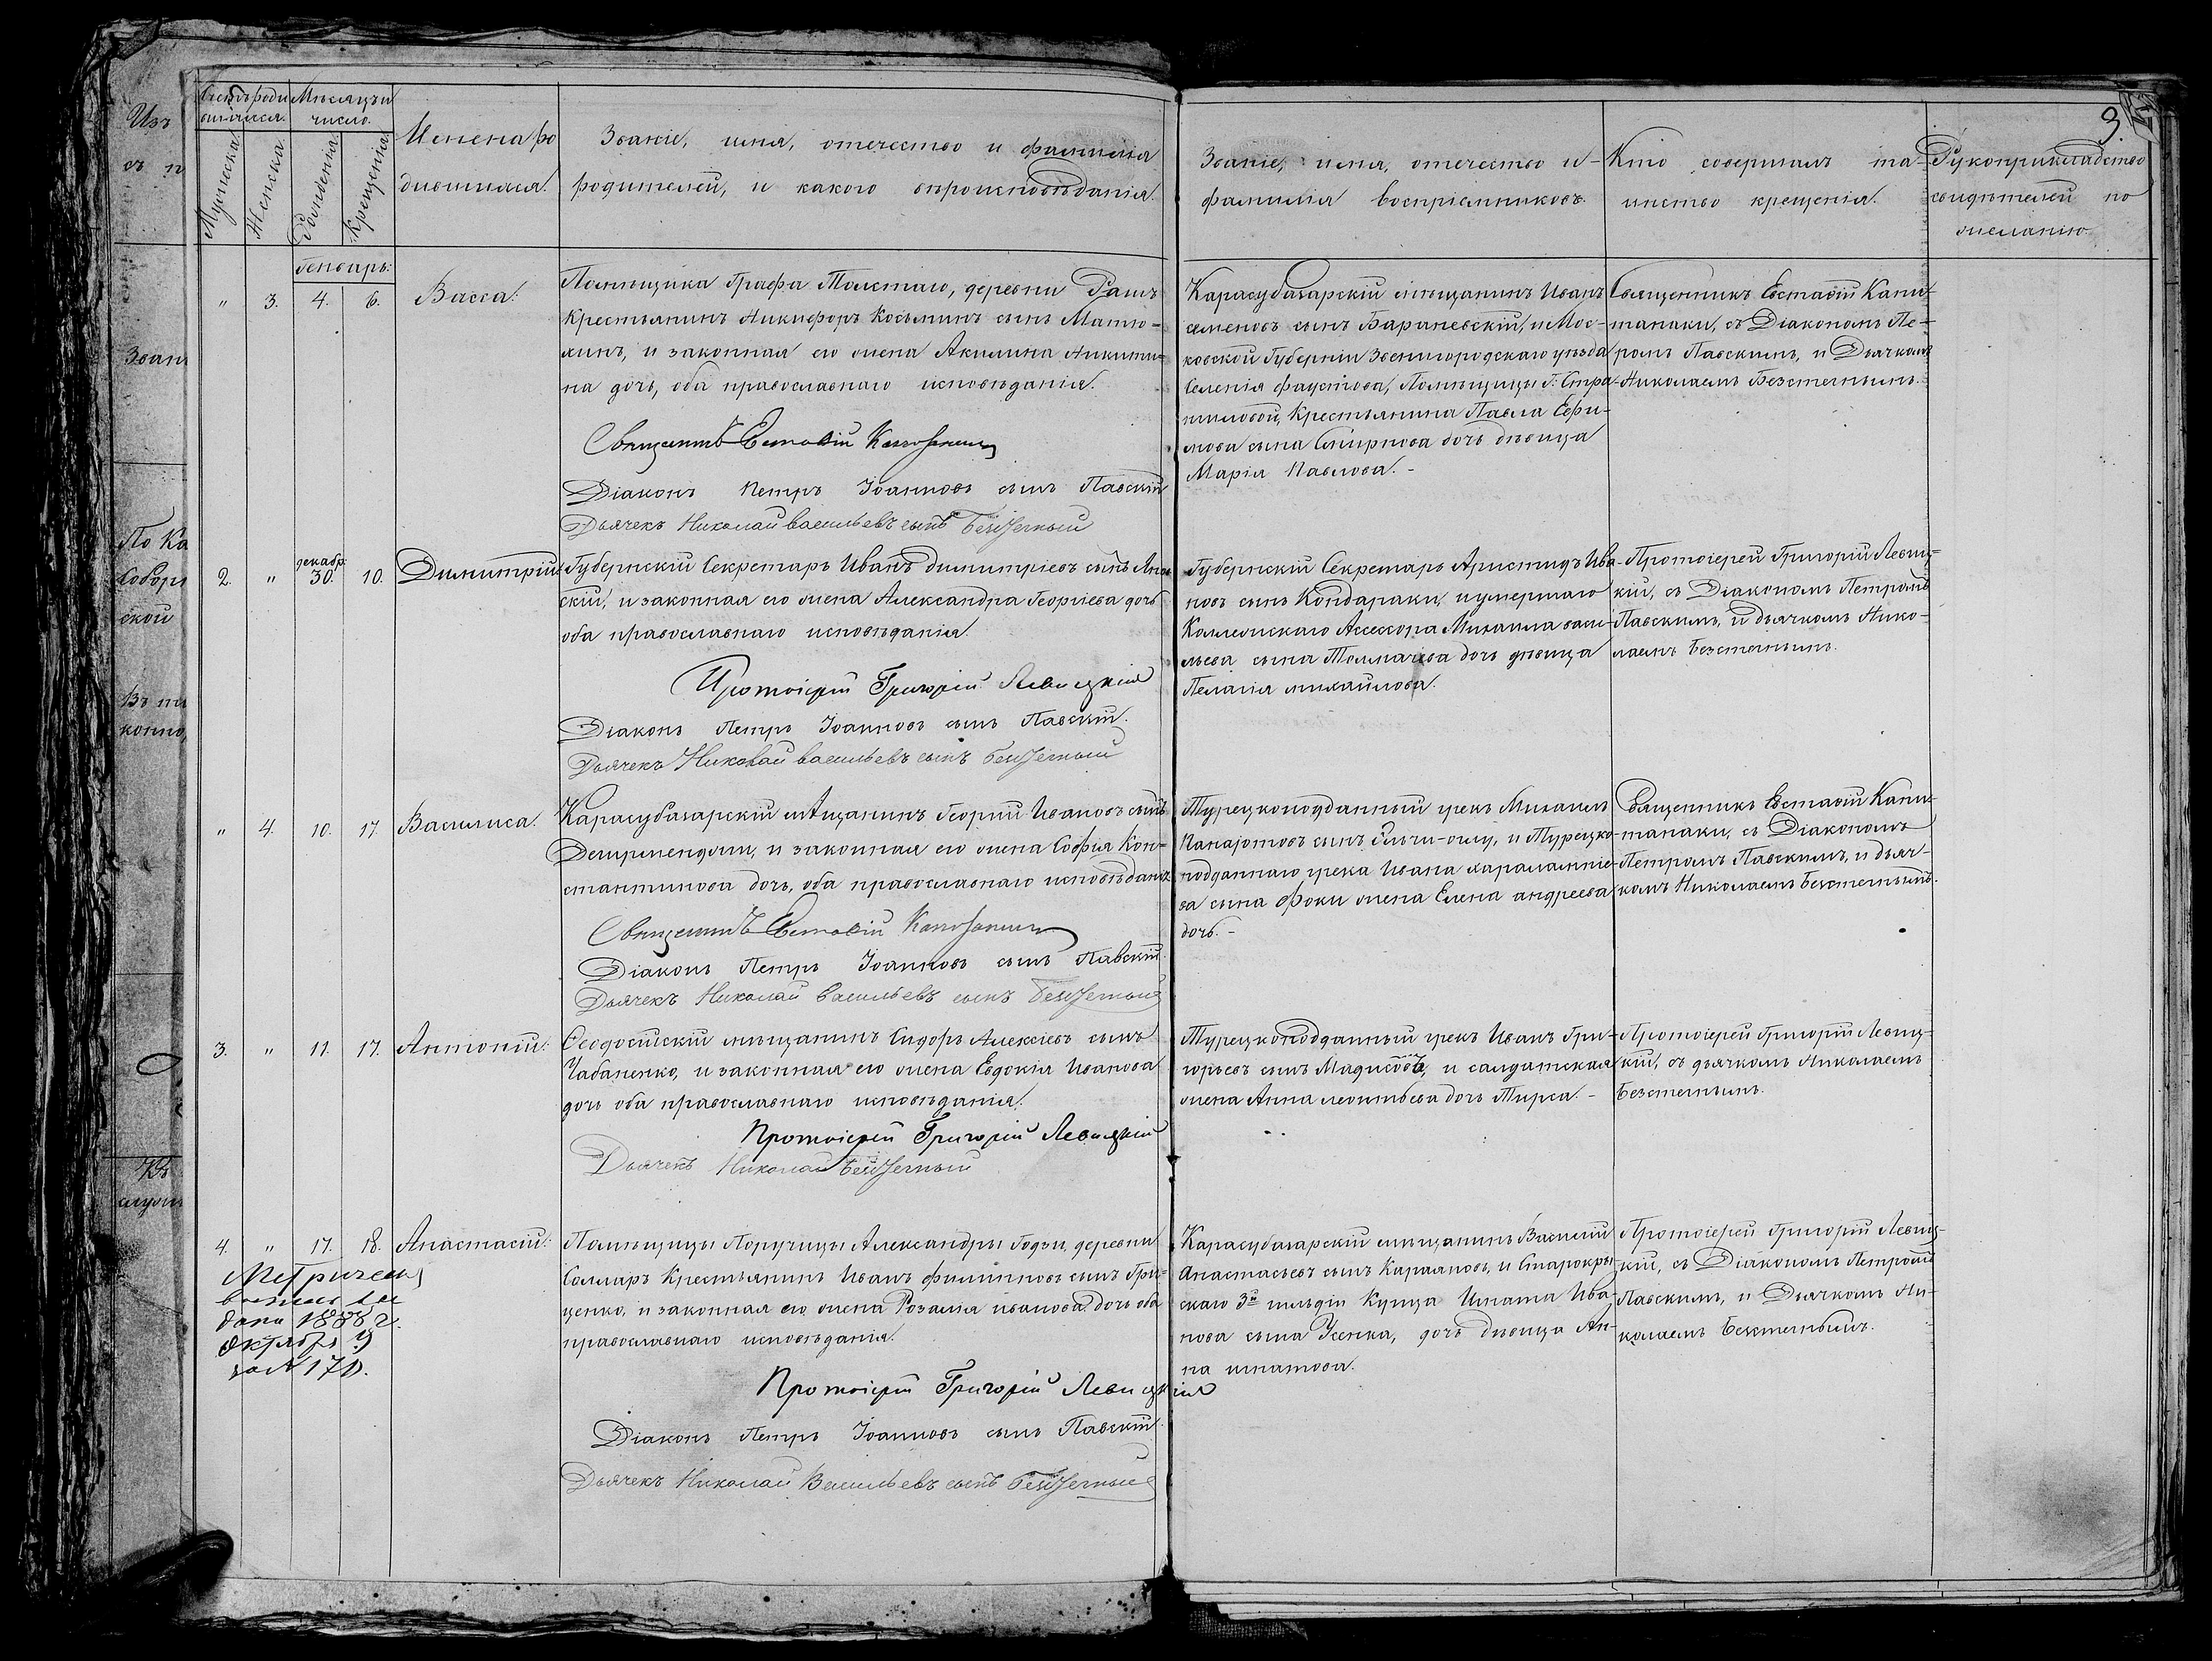 3.
Счетъ роди
вшихся.
Мѣсяцъ и
число.
Мужеска.
Женска.
Рожденія.
Крещенія.
Имена ро
дившихся.
Званіе, имя, отечество и фамилія
родителей, и какого вѣроисповѣданія.
Званіе, имя, отечество и
фамилія воспріемниковъ.
Кто совершалъ та-
инство крещенія.
Рукоприкладство
свидѣтелей по
желанію.
Изъ
Генварь.
" 3. 4. 6. Васса.
Помѣщика Графа Толстаго, деревни
Крестьянинъ Никифоръ Косьминъ сынъ Матю-
хинъ, и законная его жена Акилина Никити-
на дочь, оба православнаго исповѣданія.
Священникъ Евстафій
Діаконъ Петръ Іоанновъ сынъ Павскій
Дьячекъ Николай Васильевъ сынъ Безстечный
Карасубазарскій мѣщанинъ Иванъ
семеновъ сынъ Бараневскій, и Мос-
ковской Губерніи Звенигородскаго уѣзда
Селенія фаустова, Помѣщицы Г:
Крестьянина Павла Ефи-
мова сына Смирнова дочь дѣвица
Марія Павлова. -
Священникъ Евстафій Капи-
танаки, съ Діакономъ Пе-
ромъ Павскимъ, и Дьячкомъ
Николаемъ Безстечнымъ.
По Ка
Собор
ской
2. " декабр. 30. 10. Димитрій
Губернскій Секретарь Иванъ димитріевъ сынъ
скій, и законная его жена Александра Георгіева дочь
оба православнаго исповѣданія.
Протоіерей Григорій Левицкій
Діаконъ Петръ Іоанновъ сынъ Павскій.
Дьячекъ Николай васильевъ сынъ Безстечный
Губернскій Секретарь Аристидъ Ива-
новъ сынъ Кондараки, и умершаго
Коллежскаго Ассесора Михаила васи-
льева сына Толмачева дочь дѣвица
Пелагія михайлова.
Протоіерей Григорій Левиц-
кій, съ Діакономъ Петромъ
Павскимъ, и дьячкомъ Нико-
лаемъ Безстечнымъ.
" 4. 10. 17. Василиса.
Карасубазарскій мѣщанинъ Георгій Ивановъ сынъ
и законная его жена Софія Кон-
стантинова дочь, оба православнаго исповѣданія
Священникъ Евстафій
Діаконъ Петръ Іоанновъ сынъ Павскій.
Дьячекъ Николай Васильевъ сынъ Безстечный
Турецкоподданный грекъ Михаилъ
Панаіотовъ сынъ и Турецко-
подданнаго грека Ивана харалампіе-
ва сына Фоки жена Елена андреева
дочь. -
Священникъ Евстафій Капи-
танаки, съ Діакономъ
Петромъ Павскимъ, и дьяч-
комъ Николаемъ Безстечнымъ.
3. " 11. 17. Антоній.
Ѳеодосійскій мѣщанинъ Сидоръ Алексіевъ сынъ
Чабаненко, и законная его жена Евдокія Иванова
дочь оба православнаго исповѣданія.
Протоіерей Григорій Левицкій
Дьячекъ Николай Безстечный
Турецкоподданный грекъ Иванъ Гри-
горьевъ сынъ и салдатская
жена Анна леонтьева дочь Тирса. -
Протоіерей Григорій Левиц-
кій, съ дьячкомъ Николаемъ
Безстечнымъ.
4. " 17. 18. Анастасій.
Помѣщицы Поручицы Александры деревни
Крестьянинъ Иванъ филипповъ сынъ Гри-
ценко, и законная его жена Розалія иванова дочь оба
православнаго исповѣданія.
Протоіерей Григорій Левицкій
Діаконъ Петръ Іоанновъ сынъ Павскій.
Дьячекъ Николай Васильевъ сынъ Безстечный
Карасубазарскій мѣщанинъ Василій
Анастасьевъ сынъ Караяновъ, и Старокры
скаго 3й гильдіи Купца Игната Ива-
нова сына Усенка, дочь дѣвица Ан-
на игнатова.
Протоіерей Григорій Левиц-
кій, съ Діакономъ Петромъ
Павскимъ, и Дьячкомъ Ни-
колаемъ Безстечнымъ.
дано 1888 г.
Октября 9
за №